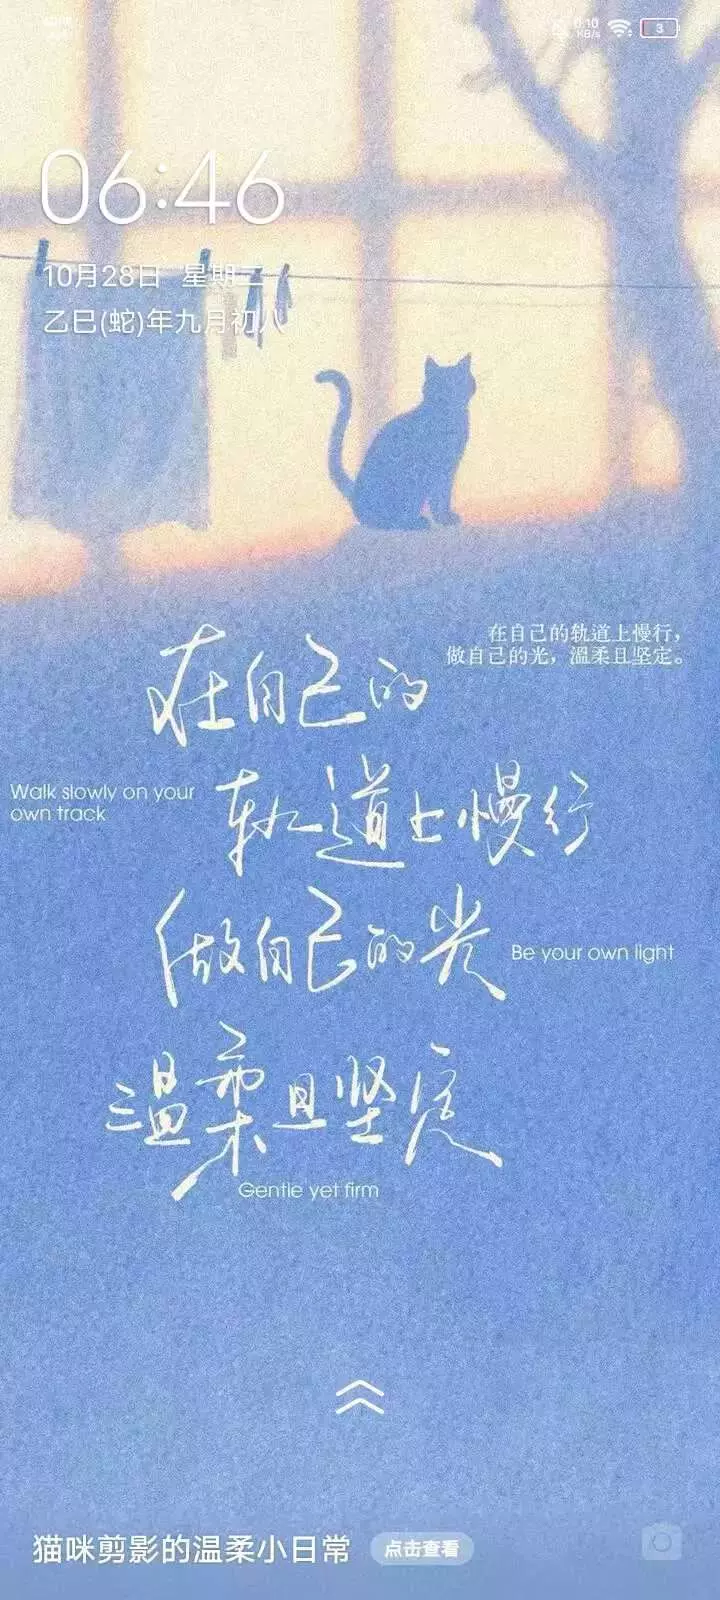 0.10
KB/s
3
06:46
10月28日 星期二
乙巳(蛇)年九月初八
在自己的轨道上慢行，
做自己的光，温柔且坚定。
在自己的
Walk slowly on your
own track
轨道上慢行
做自己的光
Be your own light
温柔且坚定
Gentle yet firm
猫咪剪影的温柔小日常
点击查看